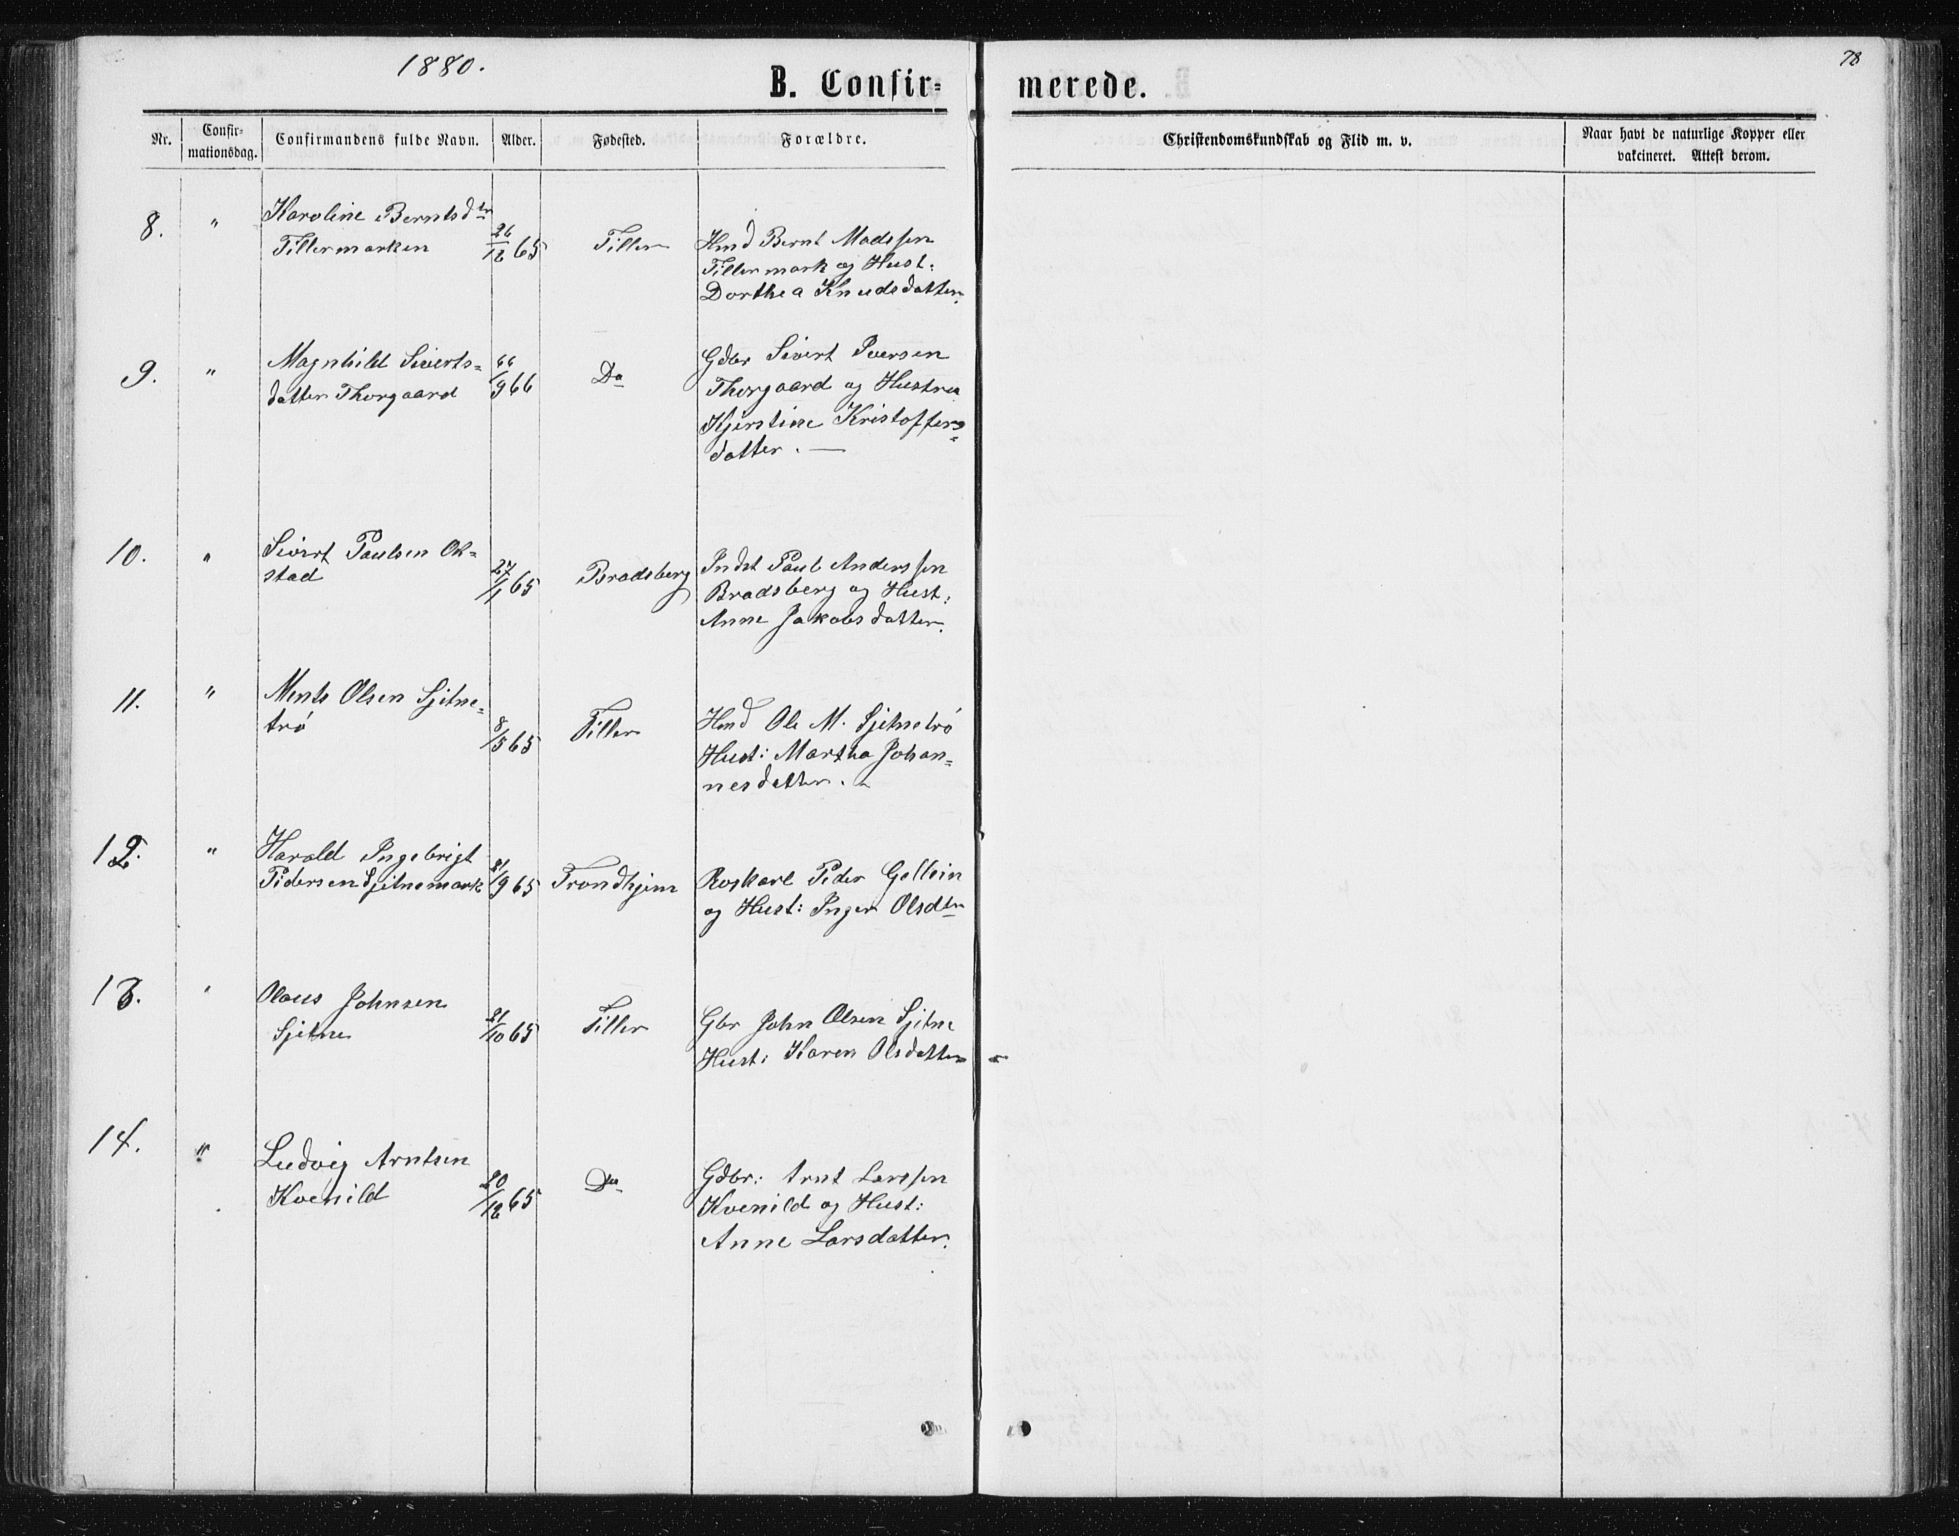 1880.
78
B. Confir=
merede.
Nr.
Confir-
mationsdag.
Confirmandens fulde Navn.
Alder.
Fødested.
Forældre.
Christendomskundskab og Flid m. v.
Naar havt de naturlige Kopper eller
vakcineret. Attest derom.
8.
"
Karoline Berntsdtr
Tillermarken
26/12 65
Tiller
Hmd Bernt Madssen
Tillermark og Hust:
Dorthea Knudsdatter.
9.
"
Magnhild Siverts=
datter Thorgaard
/9 66
Do
Gdbr Sivert Iversen
Thorgaard og Hustru
Kjerstine Kristoffers=
datter. —
10.
"
Sivert Paulsen Ok=
stad
27/1 65
Bradsberg
Indst Paul Anderssen
Bradsberg og Hust:
Anne Jakobsdatter.
11.
"
Ments Olsen Sjetne=
trø
8/5 65
Tiller
Hmd Ole M. Sjetnetrø
Hust: Martha Johan=
nesdatter. -
12.
"
Harald Ingebrigt
Pedersen Sjetnemark
21/9 65
Trondhjem
Roskarl Peder
og Hust: Inger Olsdtr
13.
"
Olaus Johnsen
Sjetne
21/10 65
Tiller
Gbr John Olsen Sjetne
Hust: Karen Olsdatter -
14.
"
Ludvig Arntsen
Kvenild
20/12 65
Do
Gdbr: Arnt Larssen
Kvenild og Hust:
Anne Larsdatter.